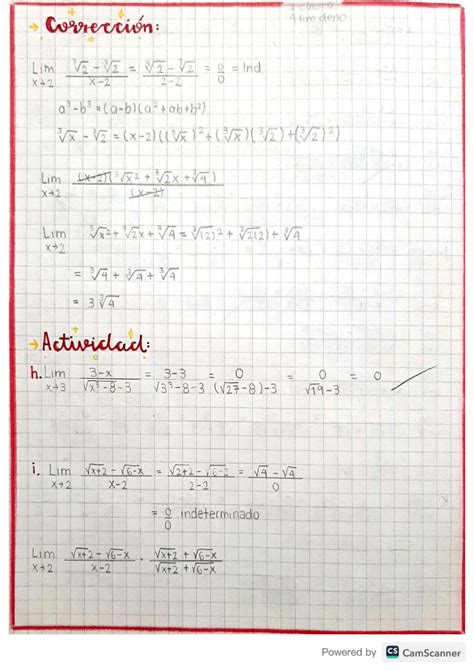 4 lim deno
→ Corrección:
Lim x→2 (∛2 - ∛2)/(x-2) = (∛2 - ∛2)/(2-2) = 0/0 = Ind
a³-b³ = (a-b)(a²+ab+b²)
∛x - ∛2 = (x-2)((∛x)²+(∛x)(∛2)+(∛2)²)
Lim x→2 (x-2)(∛x²+∛2x+∛4)/(x-2)
Lim x→2 ∛x²+∛2x+∛4 = ∛(2)²+∛2(2)+∛4
= ∛4+∛4+∛4
= 3∛4
→ Actividad:
h. Lim x→3 (3-x)/(√x³-8-3) = (3-3)/(√3³-8-3) = 0/((√27-8)-3) = 0/(√19-3) = 0
i. Lim x→2 (√x+2 - √6-x)/(x-2) = (√2+2 - √6-2)/(2-2) = (√4 - √4)/0
= 0/0 indeterminado
Lim x→2 (√x+2 - √6-x)/(x-2) · (√x+2 + √6-x)/(√x+2 + √6-x)
Powered by CS CamScanner